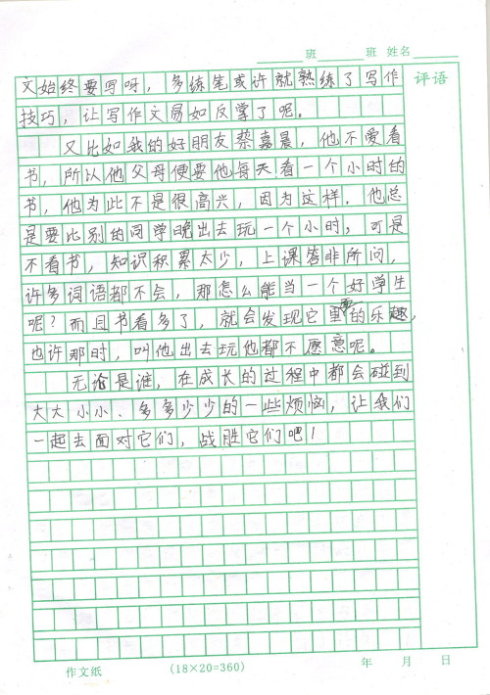 班 班 姓名
评语
文始终要写呀，多练笔或许就熟练了写作
技巧，让写作文易如反掌了呢。
又比如我的好朋友蔡嘉晨，他不爱看
书，所以他父母便要他每天看一个小时的
书，他为此不是很高兴，因为这样，他总
是要比别的同学晚出去玩一个小时，可是
不看书，知识积累太少，上课答非所问，
许多词语都不会，那怎么能当一个好学生
呢？而且书看多了，就会发现它里面的乐趣，
也许那时，叫他出去玩他都不愿意呢。
无论是谁，在成长的过程中都会碰到
大大小小、多多少少的一些烦恼，让我们
一起去面对它们，战胜它们吧！
作文纸 (18×20=360) 年 月 日